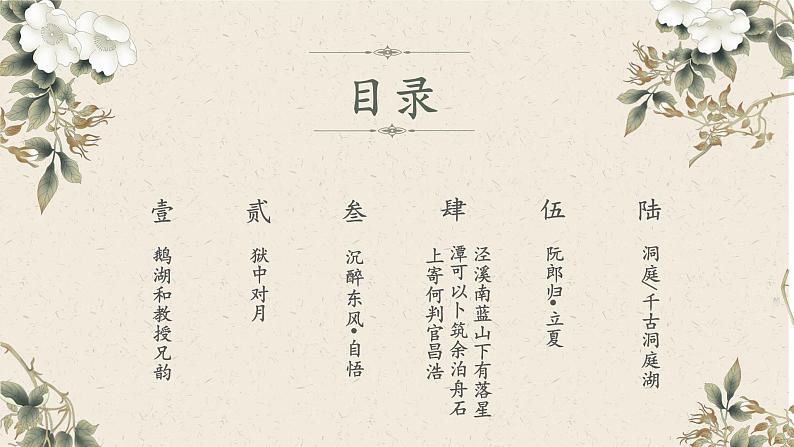 目录
壹
鹅湖和教授兄韵
贰
狱中对月
叁
沉醉东风•自悟
肆
泾溪南蓝山下有落星
潭可以卜筑余泊舟石
上寄何判官昌浩
伍
阮郎归•立夏
陆
洞庭/千古洞庭湖